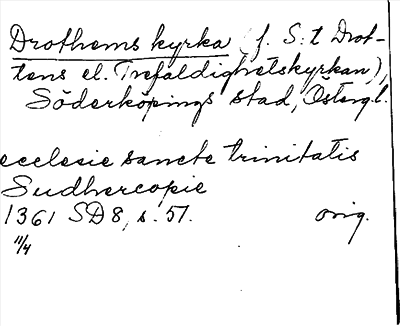 Drothems kyrka (f. S:t Drot-
tens el. Trefaldighetskyrkan),
Söderköpings stad, Östergl.
ecclesie sancte trinitatis
Sudhercopie
1361 SD 8, s. 57. orig.
11/4